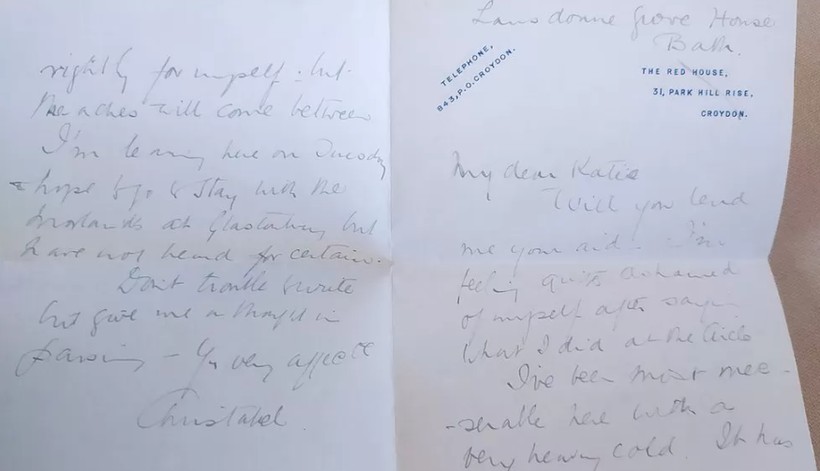 Lansdowne Grove House
Bath.
TELEPHONE,
843, P.O. CROYDON.
THE RED HOUSE,
31, PARK HILL RISE,
CROYDON.
My dear Katie
Will you lend
me your aid. I'm
feeling quite ashamed
of myself after saying
what I did at the Circle
I've been most mee-
-serable here with a
very heavy cold. It has
rightly for myself. but
the aches will come between
I'm leaving here on Tuesday
& hope to go & stay with the
at Glastonbury but
have not heard for certain.
Don't trouble to write
but give me a thought in
passing – Yr very affecte
Christabel.